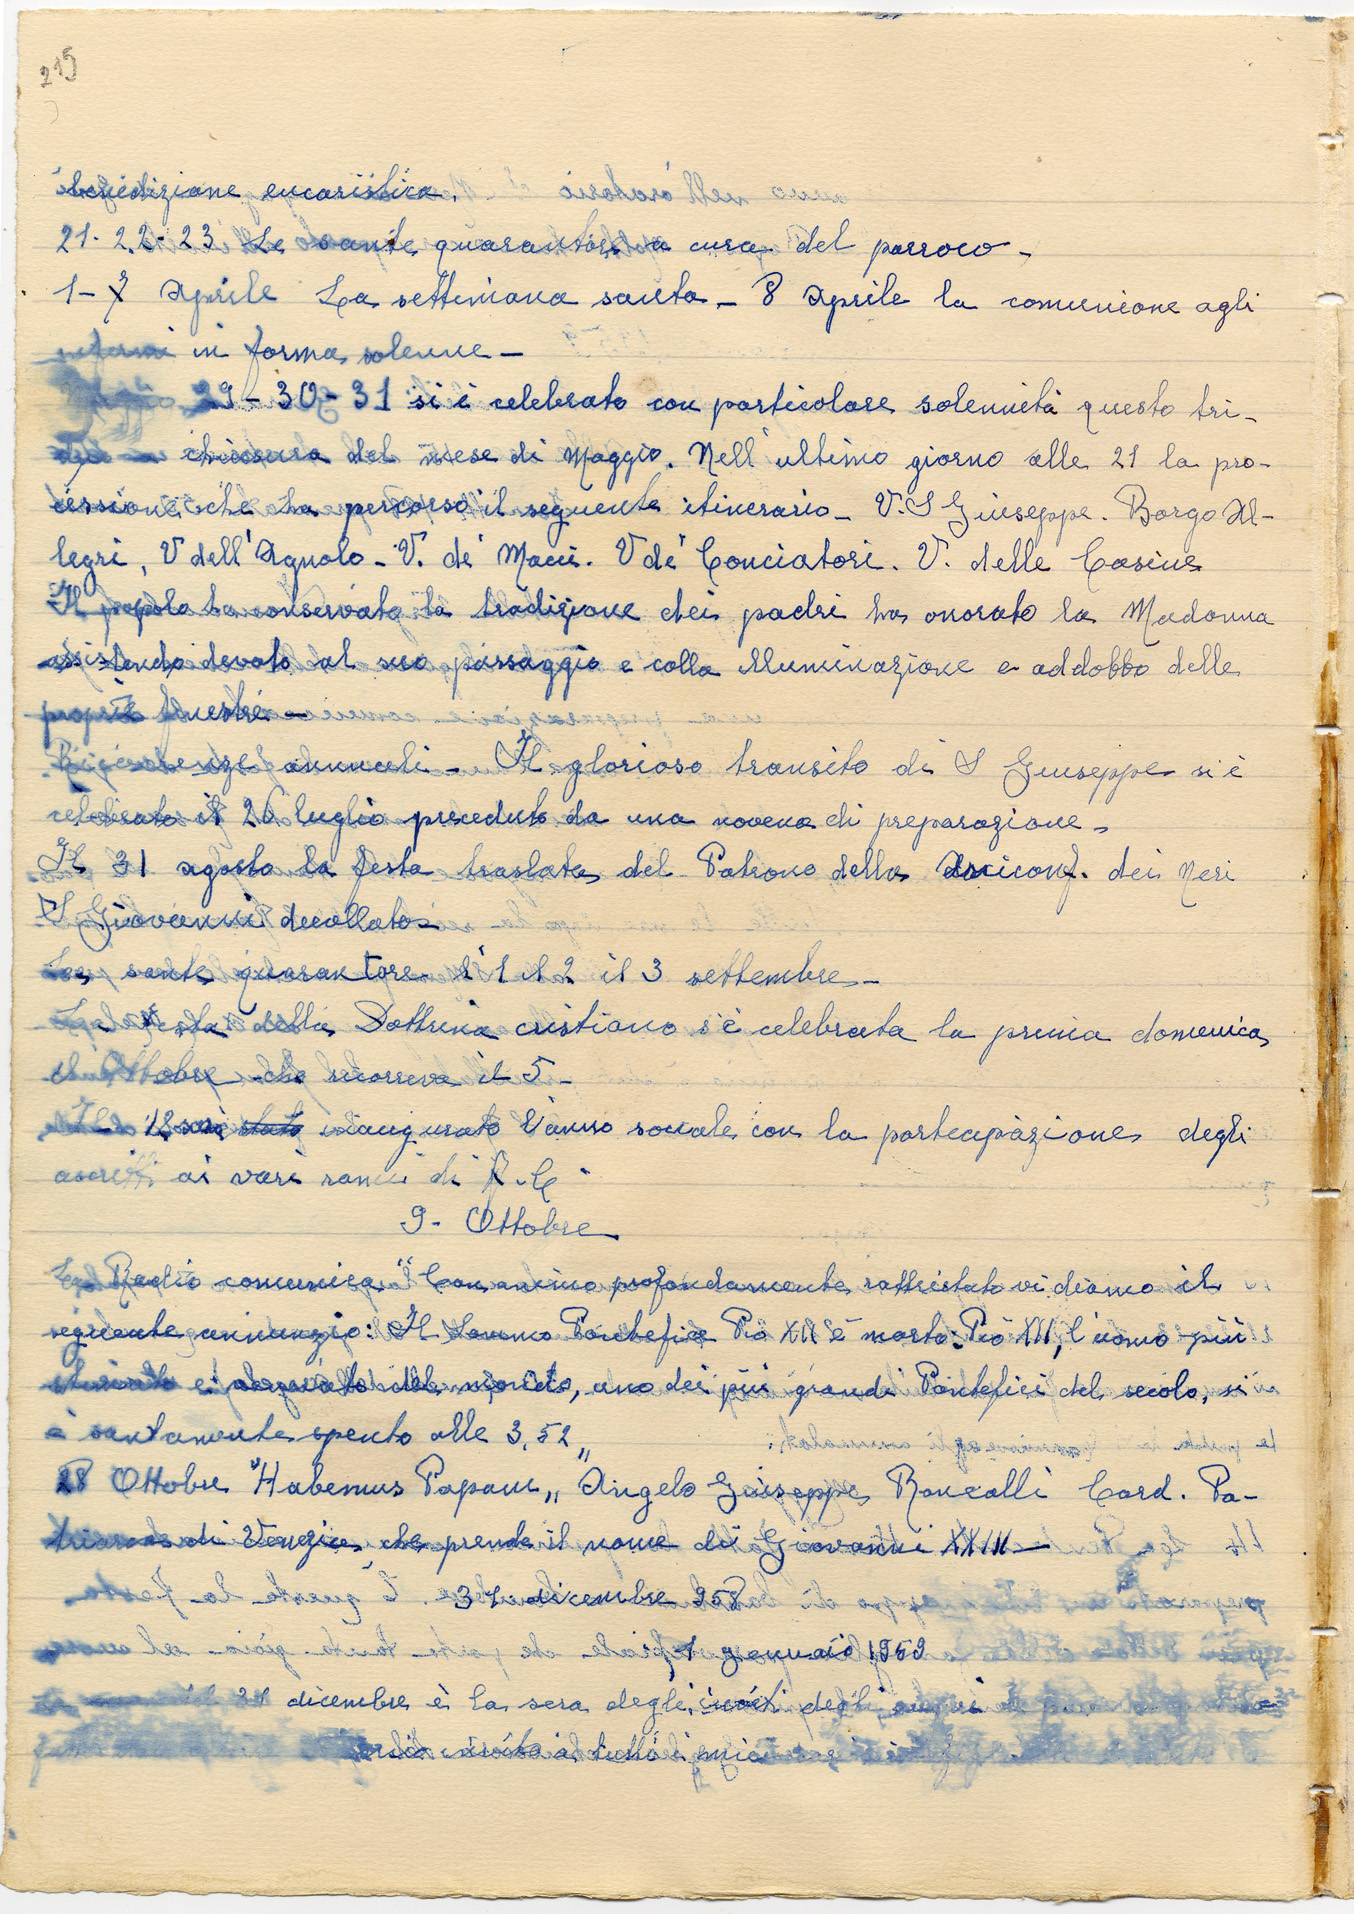 215
benedizione eucaristica.
21. 22. 23 Le sante quarantore a cura del parroco -
1 - 7 Aprile La settimana santa - 8 Aprile la comunione agli
infermi in forma solenne -
Maggio 29 - 30 - 31 si è celebrato con particolare solennità questo tri-
duo a chiusura del mese di Maggio. Nell'ultimo giorno alle 21 la pro-
cessione che ha percorso il seguente itinerario - V. S Giuseppe. Borgo Al-
legri, V dell'Agnolo - V. de' Macci. V de' Conciatori. V. delle Casine
Il popolo ha conservato la tradizione dei padri ha onorato la Madonna
assistendo devoto al suo passaggio e colla illuminazione e addobbo delle
proprie finestre -
Ricorrenze annuali - Il glorioso transito di S Giuseppe si è
celebrato il 20 luglio preceduto da una novena di preparazione -
Il 31 agosto la festa traslata del Patrono della Arciconf. dei Neri
S Giovanni decollato -
Le sante quarantore l'1 il 2 il 3 settembre -
La festa della Dottrina cristiana s'è celebrata la prima domenica
di Ottobre che ricorreva il 5 -
Il 12 sarà stato inaugurato l'anno sociale con la partecipazione degli
ascritti ai vari rami di A. C.
9 - Ottobre
La Radio comunica "Con animo profondamente rattristato vi diamo il
seguente annunzio: Il Sommo Pontefice Pio XII è morto. Pio XII, l'uomo più
stimato e del mondo, uno dei più grandi Pontefici del secolo, si
è santamente spento alle 3,52"
28 Ottobre "Habemus Papam" Angelo Giuseppe Roncalli Card. Pa-
triarca di Venezia che prende il nome di Giovanni XXIII -
31 dicembre 958
1 gennaio 1959
il 31 dicembre è la sera degli inviti degli auguri
a tutti i miei